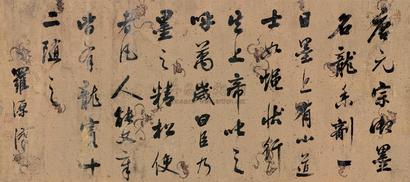 唐元宗御墨
名龍香劑一
日墨上有小道
士如蠅狀行
上帝叱之
呼萬歲曰臣乃
墨之精松使
者凡人能文章
皆有龍賓十
二隨之
羅源漢